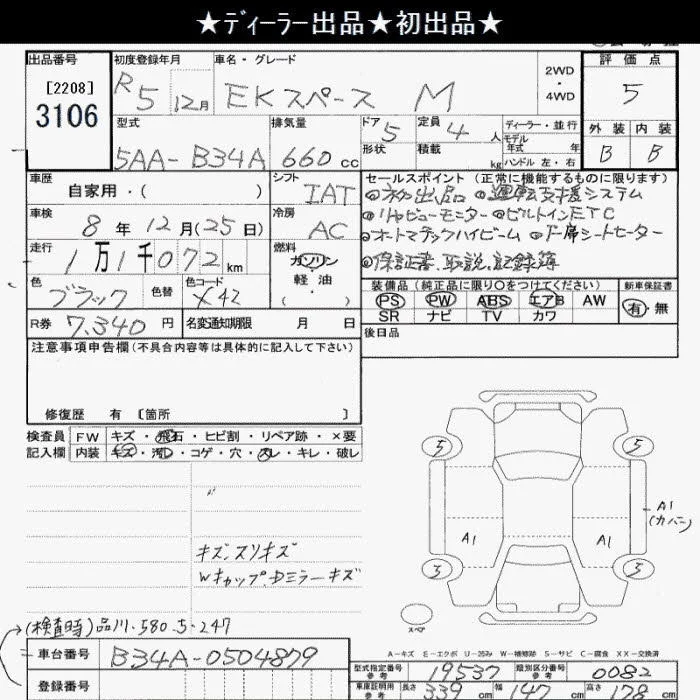 ★ディーラー出品★初出品★
出品番号
[2208]
3106
初度登録年月
R5 12月
車名・グレード
EKスペース M
2WD
・
4WD
評価点
5
外装 内装
B B
型式
5AA-B34A
排気量
660 cc
ドア 5
形状
定員 4 人
積載 kg
ディーラー・並行
モデル
年式 年
ハンドル 左・右
車歴
自家用・( )
シフト
IAT
車検
8年12月(25日)
冷房
AC
走行
1万1千072 km
燃料
ガソリン
軽油
( )
色
ブラック
色替
色コード
X42
R券 7,340円
名変通知期限 月 日
セールスポイント (正常に機能するものに限ります)
◎初出品 ◎運転支援システム
◎リヤビューモニター ◎ビルトインETC
◎オートマチックハイビーム ◎F席シートヒーター
◎保証書、取説、記録簿
装備品 (純正品に限り〇をつけてください)
PS PW ABS エアB AW
SR ナビ TV カワ
新車保証書
有・無
後日品
注意事項申告欄 (不具合内容等は具体的に記入して下さい)
修復歴 有 〔箇所 〕
検査員
記入欄
FW キズ・飛石・ヒビ割・リペア跡・×要
内装 キズ・汚レ・コゲ・穴・スレ・キレ・破レ
キズ、スリキズ
Wキャップ、Dミラーキズ
5 5
A1 A1
A1
(カバン)
5 5
スペア
A-キズ E-エクボ U-凹み W-補修跡 S-サビ C-腐食 XX-交換済
(検査時)品川・580・5・247
車台番号 B34A-0504879
登録番号
型式指定番号
参考
19537
類別区分番号
参考
0082
車庫証明用
参考
長さ 339 cm 幅 147 cm 高さ 178 cm